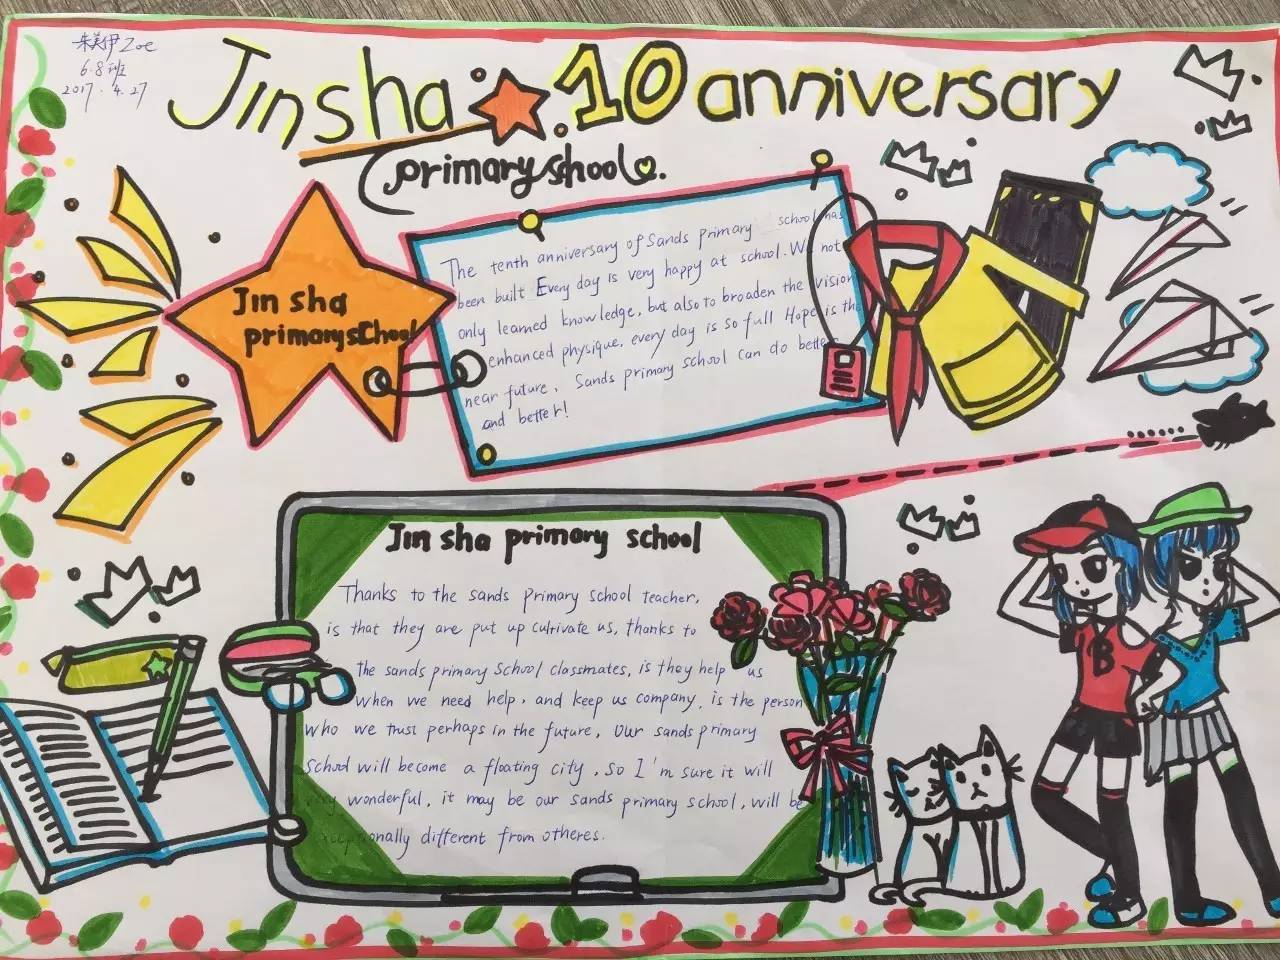 朱美伊 Zoe
6.8班
2017. 4.27
Jinsha 10 anniversary
primary shool
Jin sha
primary school
The tenth anniversary of Sands primary school has
been built Every day is very happy at school. We not
only learned knowledge, but also to broaden the vision
enhanced physique, every day is so full Hope is the
near future, Sands primary school can do better
and better!
Jin sha primary school
Thanks to the sands primary school teacher,
is that they are put up cultivate us, thanks to
the sands primary School classmates, is they help us
when we need help, and keep us company, is the person
who we trust perhaps in the future, our sands primary
School will become a floating city, so I'm sure it will
wonderful, it may be our sands primary school, will be
exceptionally different from otheres.
B